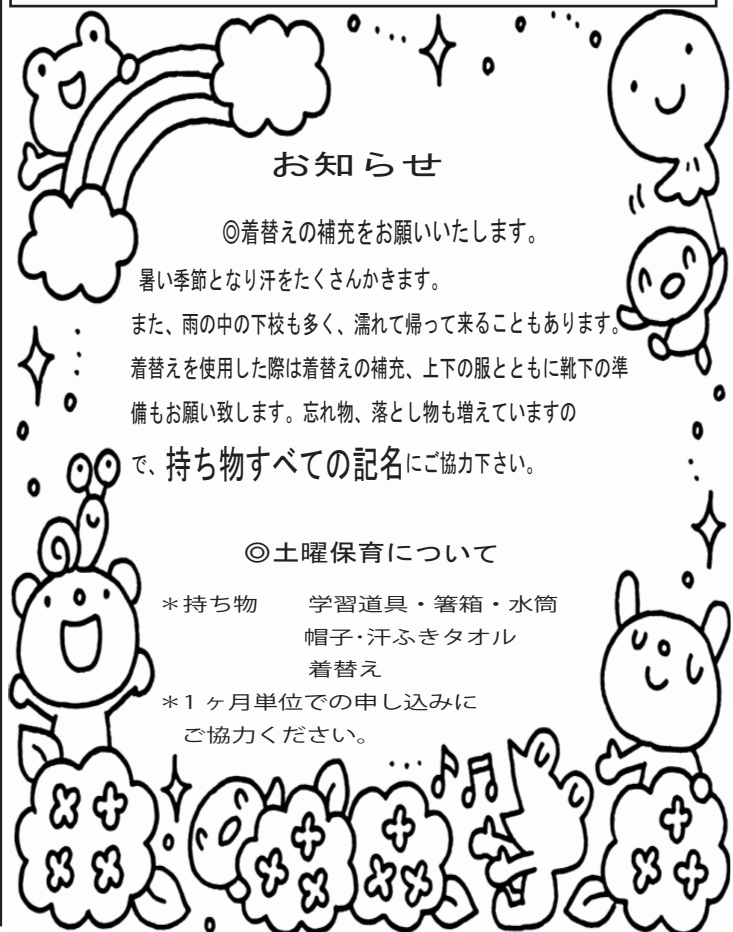 お知らせ
◎着替えの補充をお願いいたします。
暑い季節となり汗をたくさんかきます。
また、雨の中の下校も多く、濡れて帰って来ることもあります。
着替えを使用した際は着替えの補充、上下の服とともに靴下の準
備もお願い致します。忘れ物、落とし物も増えていますの
で、持ち物すべての記名にご協力下さい。
◎土曜保育について
＊持ち物　　学習道具・箸箱・水筒
帽子･汗ふきタオル
着替え
＊1 ヶ月単位での申し込みに
ご協力ください。